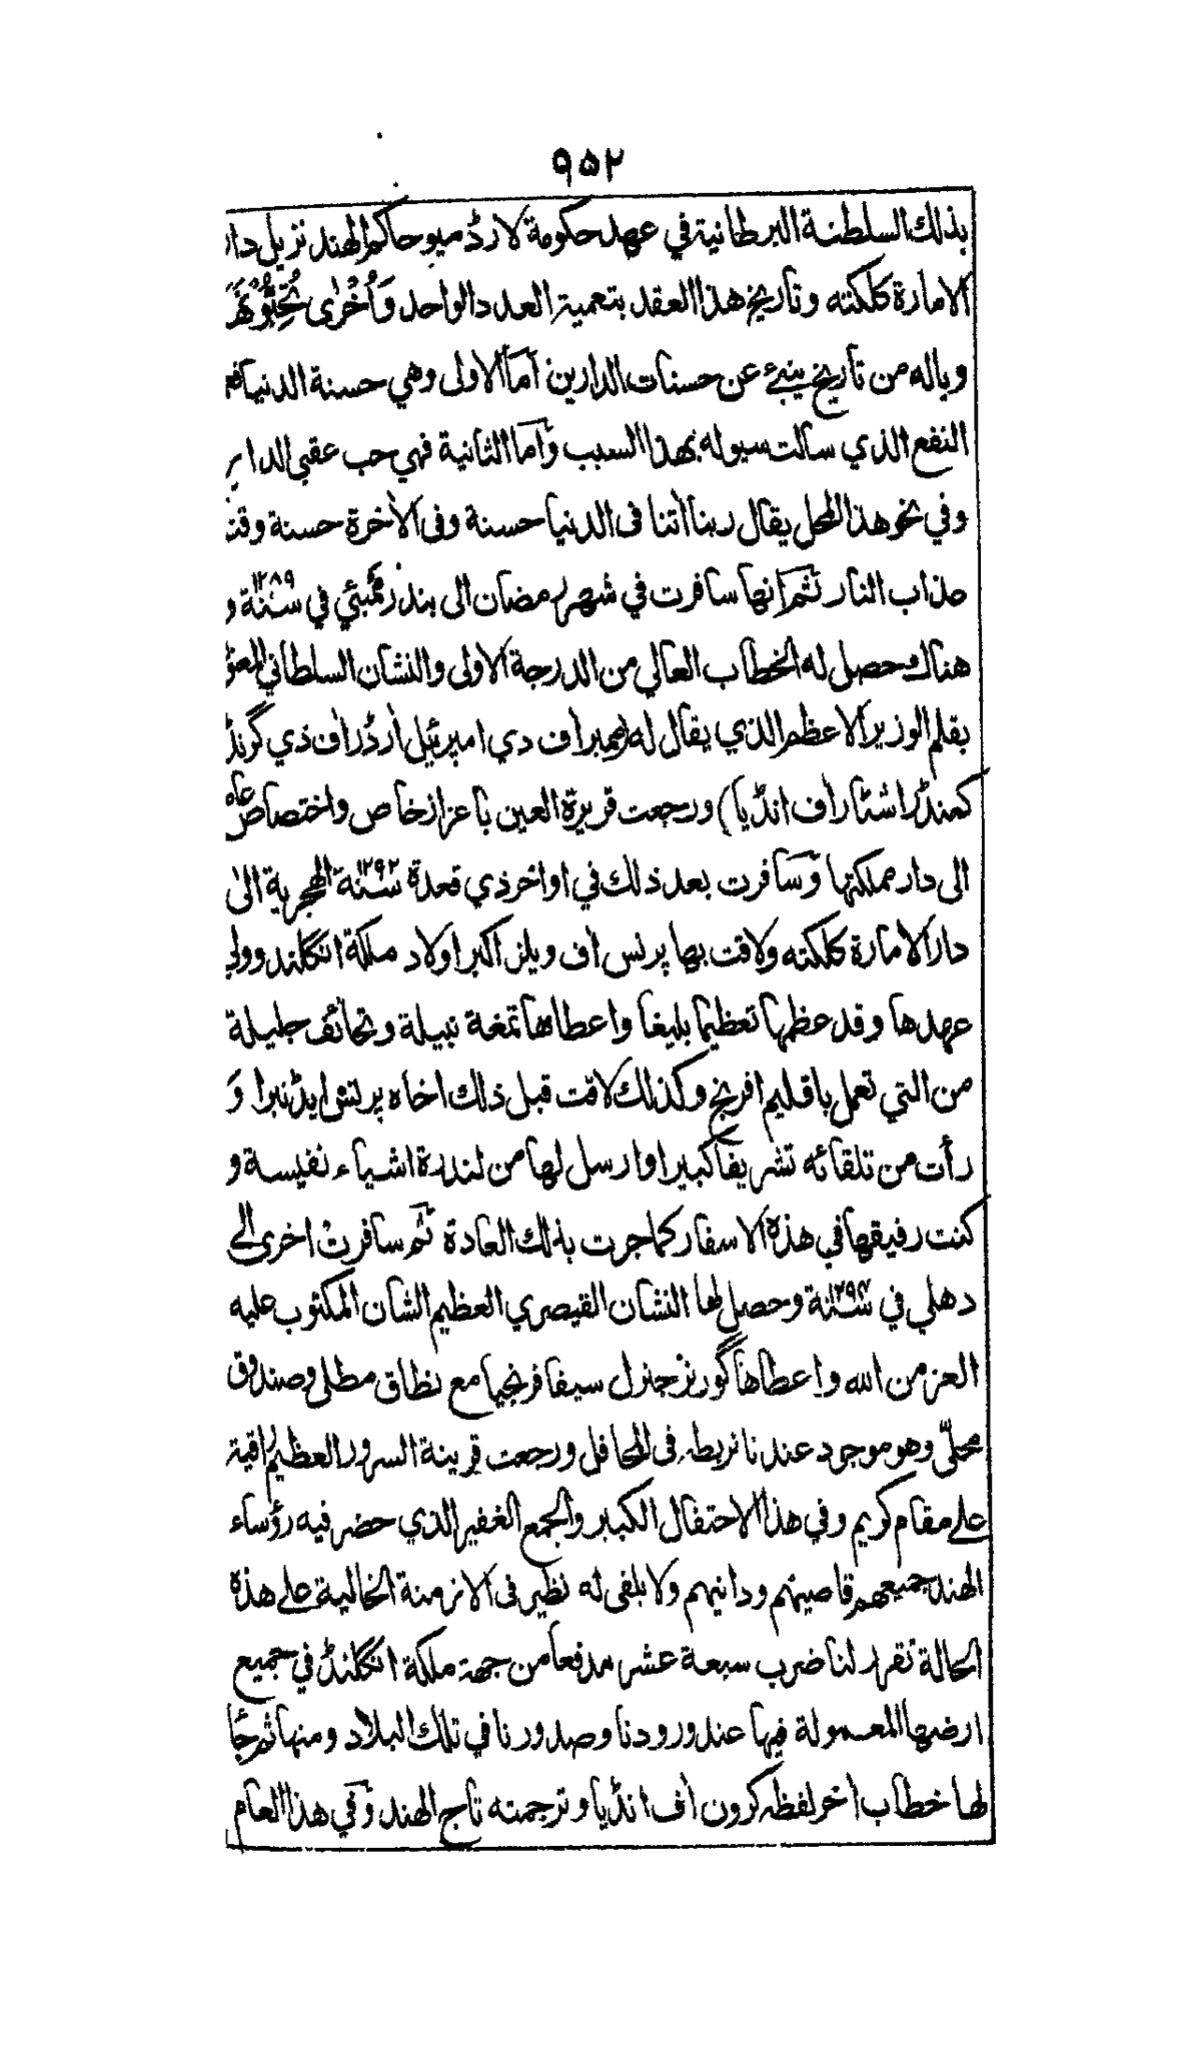 ٩٥٢
بذلك السلطنة البرطانية في عهد حكومة لارڈ ميو حاكم الهند نزيل دار
الامارة كلكته وتاريخ هذا العقد بتعمية العدد الواحد وَأُخْرٰى تُحِبُّوْنَهَا
وياله من تاريخ ينبئ عن حسنات الدارين امّا الاولى وهي حسنة الدنيا فهو
النفع الذي سالت سيوله بهذا السبب وامّا الثانية فهي حب عقبى الدار
وفي نحو هذا المحل يقال ربنا اٰتنا فى الدنيا حسنة وفى الاٰخرة حسنة وقنا
عذاب النار ثم انها سافرت في شهر رمضان الى بندر ممبئي في سنة ١٢٨٩ و
هناك حصل له الخطاب العالي من الدرجة الاولى والنشان السلطاني
بقلم الوزير الاعظم الذي يقال له (ممبر اف دي امپرئيل ارڈر اف ذي گرنڈ
كمنڈر اشٹار اف انڈيا) ورجعت قريرة العين باعزاز خاص واختصاص
الى دار مملكتها وسافرت بعد ذلك في اواخر ذي قعدة سنة ١٢٩٢ الهجرية الى
دار الامارة كلكته ولاقت بها پرنس اف ويلز اكبر اولاد ملكة انگلند وولي
عهدها وقد عظمها تعظيما بليغا واعطاها تمغة نبيلة وتحائف جليلة
من التي تعمل باقليم افرنج وكذلك لاقت قبل ذلك اخاه پرنس ايڈنبرا و
رأت من تلقائه تشريفا كبيرا وارسل لها من لندرة اشياء نفيسة و
كنت رفيقها في هذه الاسفار كما جرت بذلك العادة ثم سافرت اخرى الى
دهلي في سنة وحصل لها النشان القيصري العظيم الشان المكتوب عليه
العز من الله واعطاها گورنر جنرل سيفا فرنجيا مع نطاق مطلى وصندوق
محلّى وهو موجود عندنا نربطه فى المحافل ورجعت قرينة السرور العظيم راقية
على مقام كريم وفي هذا الاحتفال الكبير والجمع الغفير الذي حضر فيه رؤساء
الهند جميعهم قاصينهم ودانيهم ولا يلفى له نظير فى الازمنة الخالية على هذه
الحالة تقرر لنا ضرب سبعة عشر مدفعا من جهة ملكة انگلنڈ في جميع
ارضها المعمولة فيها عند ورودنا وصدورنا في تلك البلاد ومنها ثم جاء
لها خطاب اخر لفظه كرون اف انڈيا وترجمته تاج الهند وفي هذا العام